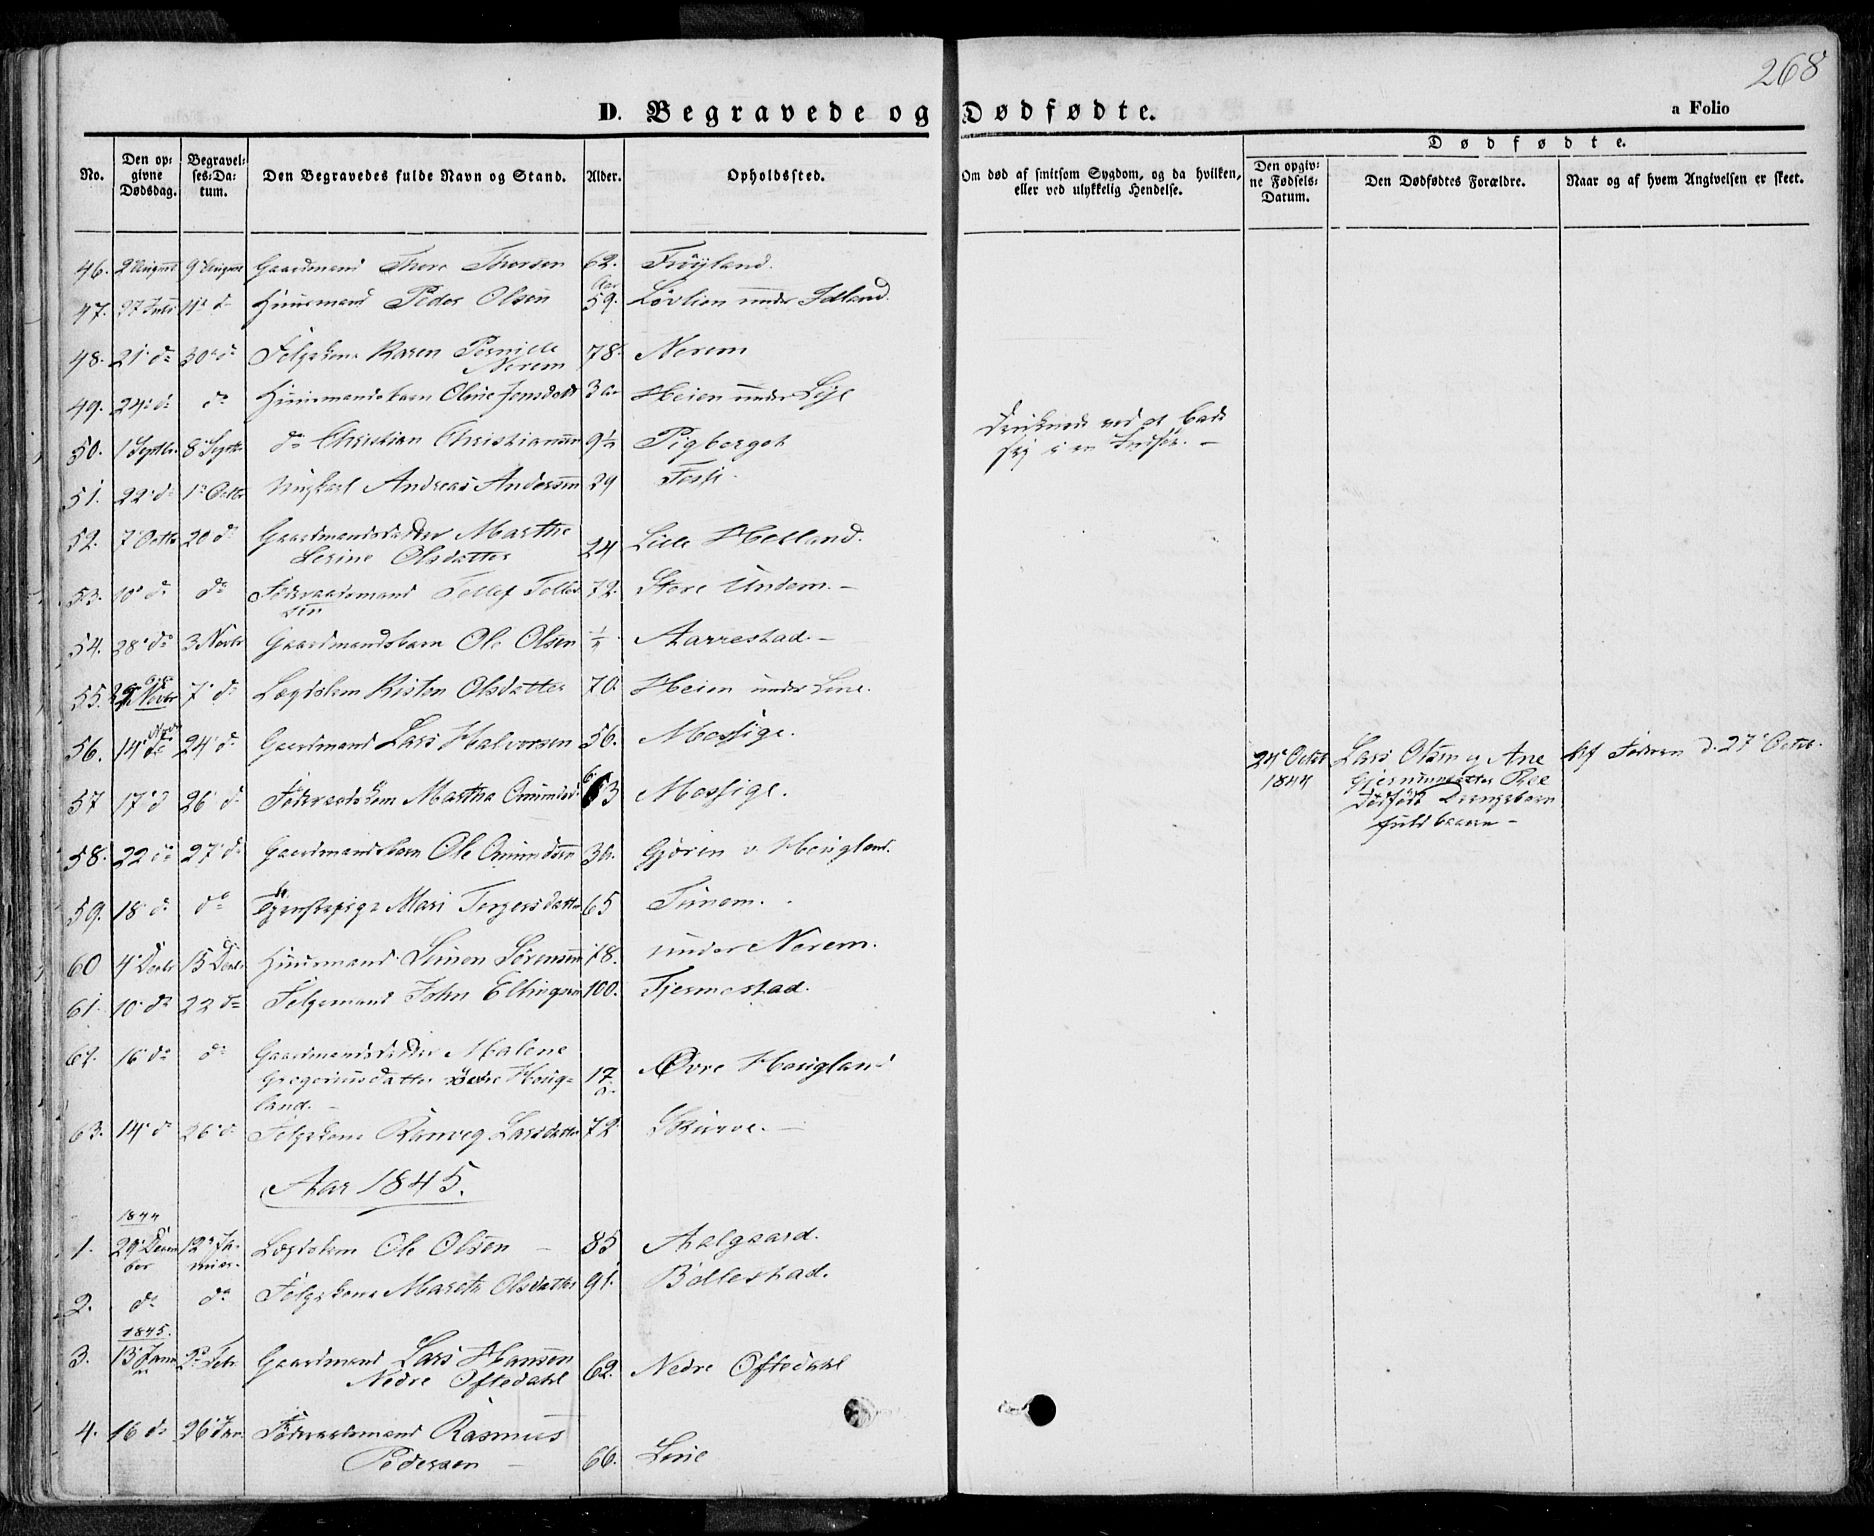 268
D. Begravede og Dødfødte.
a Folio
No.
Den opgivne Dødsdag.
Begravelses-Datum.
Den Begravedes fulde Navn og Stand.
Alder.
Opholdssted.
Om død af smitsom Sygdom, og da hvilken, eller ved ulykkelig Hendelse.
Dødfødte.
Den opgivne Fødsels-Datum.
Den Dødfødtes Forældre.
Naar og af hvem Angivelsen er skeet.
46. 2 August 9 August Gaardmand Thore Thorsen 62. Frøyland.
47. 27 Juli 11 d Huusmand Peder Olsen 59. Løvlien under Idland.
48. 21 do 30 d Folgekone Karen Pernille Norem 78. Norem
49. 24 do do Huusmandsbarn Oline Jensdatt 3 Heien under Lye
50. 1 Septbr. 8 Septbr do Christian Christiansen 9½ Pigberget
Druknede ved at bade
sig i en
51. 22 do 1 Octbr Ungkarl Andreas Andersen 29
52. 7 Octbr 20 d Gaardmandsdatter Marthe
Serine Olsdatter 24 Lille Helland.
53. 10 d do Føderaadsmand Tollef Tollef
sen 72. Store Undem.
54. 28 do 3 Novbr Gaardmandsbarn Ole Olsen ½ Aarrestad.
55. 7 d Lægdslem Kisten Olsdatter 70. Heien under Line.
56. 14 24 d Gaardmand Lars Halvorsen 56. Mossige.
24 Octbr 1844 Lars Olsen og Ane
Dødfødt Drengebarn
fuldbaaren
Af Faderen d. 27 Octbr.
57 17 d 26 d Føderaadskone Martha Omundsd. 63 Mossige.
58. 22 do 27 do Gaardmandsbarn Ole Omundsen 3 Gjøren v Høigland.
59. 18 d do Tjenstepige Mari Torgersdatter 65 Tunem.
60 4 Decbr 15 Decbr Huusmand Simen Sørensen 78. under Norem.
61. 10 do 22 do Folgemand John Ellingsen 100. Fjermestad.
62. 16 do do Gaardmandsdatter Malene
Gregoriusdatter Øvre Høig-
land. 17 Øvre Høigland
63. 14 d 26 d Folgekone Ranveg Larsdatter 72 Skurve.
Aar 1845.
1844
1. 29 Decem
ber 12 Ja-
nuar. Lægdslem Ole Olsen 85 Aalgaard.
2. do do Folgekone Marete Olsdatter 91. Bollestad.
1845.
3. 13 Janu 2 Febr Gaardmand Lars Hansen
Nedre Oftedahl 62. Nedre Oftedahl
4. 16 do 26 Jan. Føderaadsmand Rasmus
Pedersen 66. Line